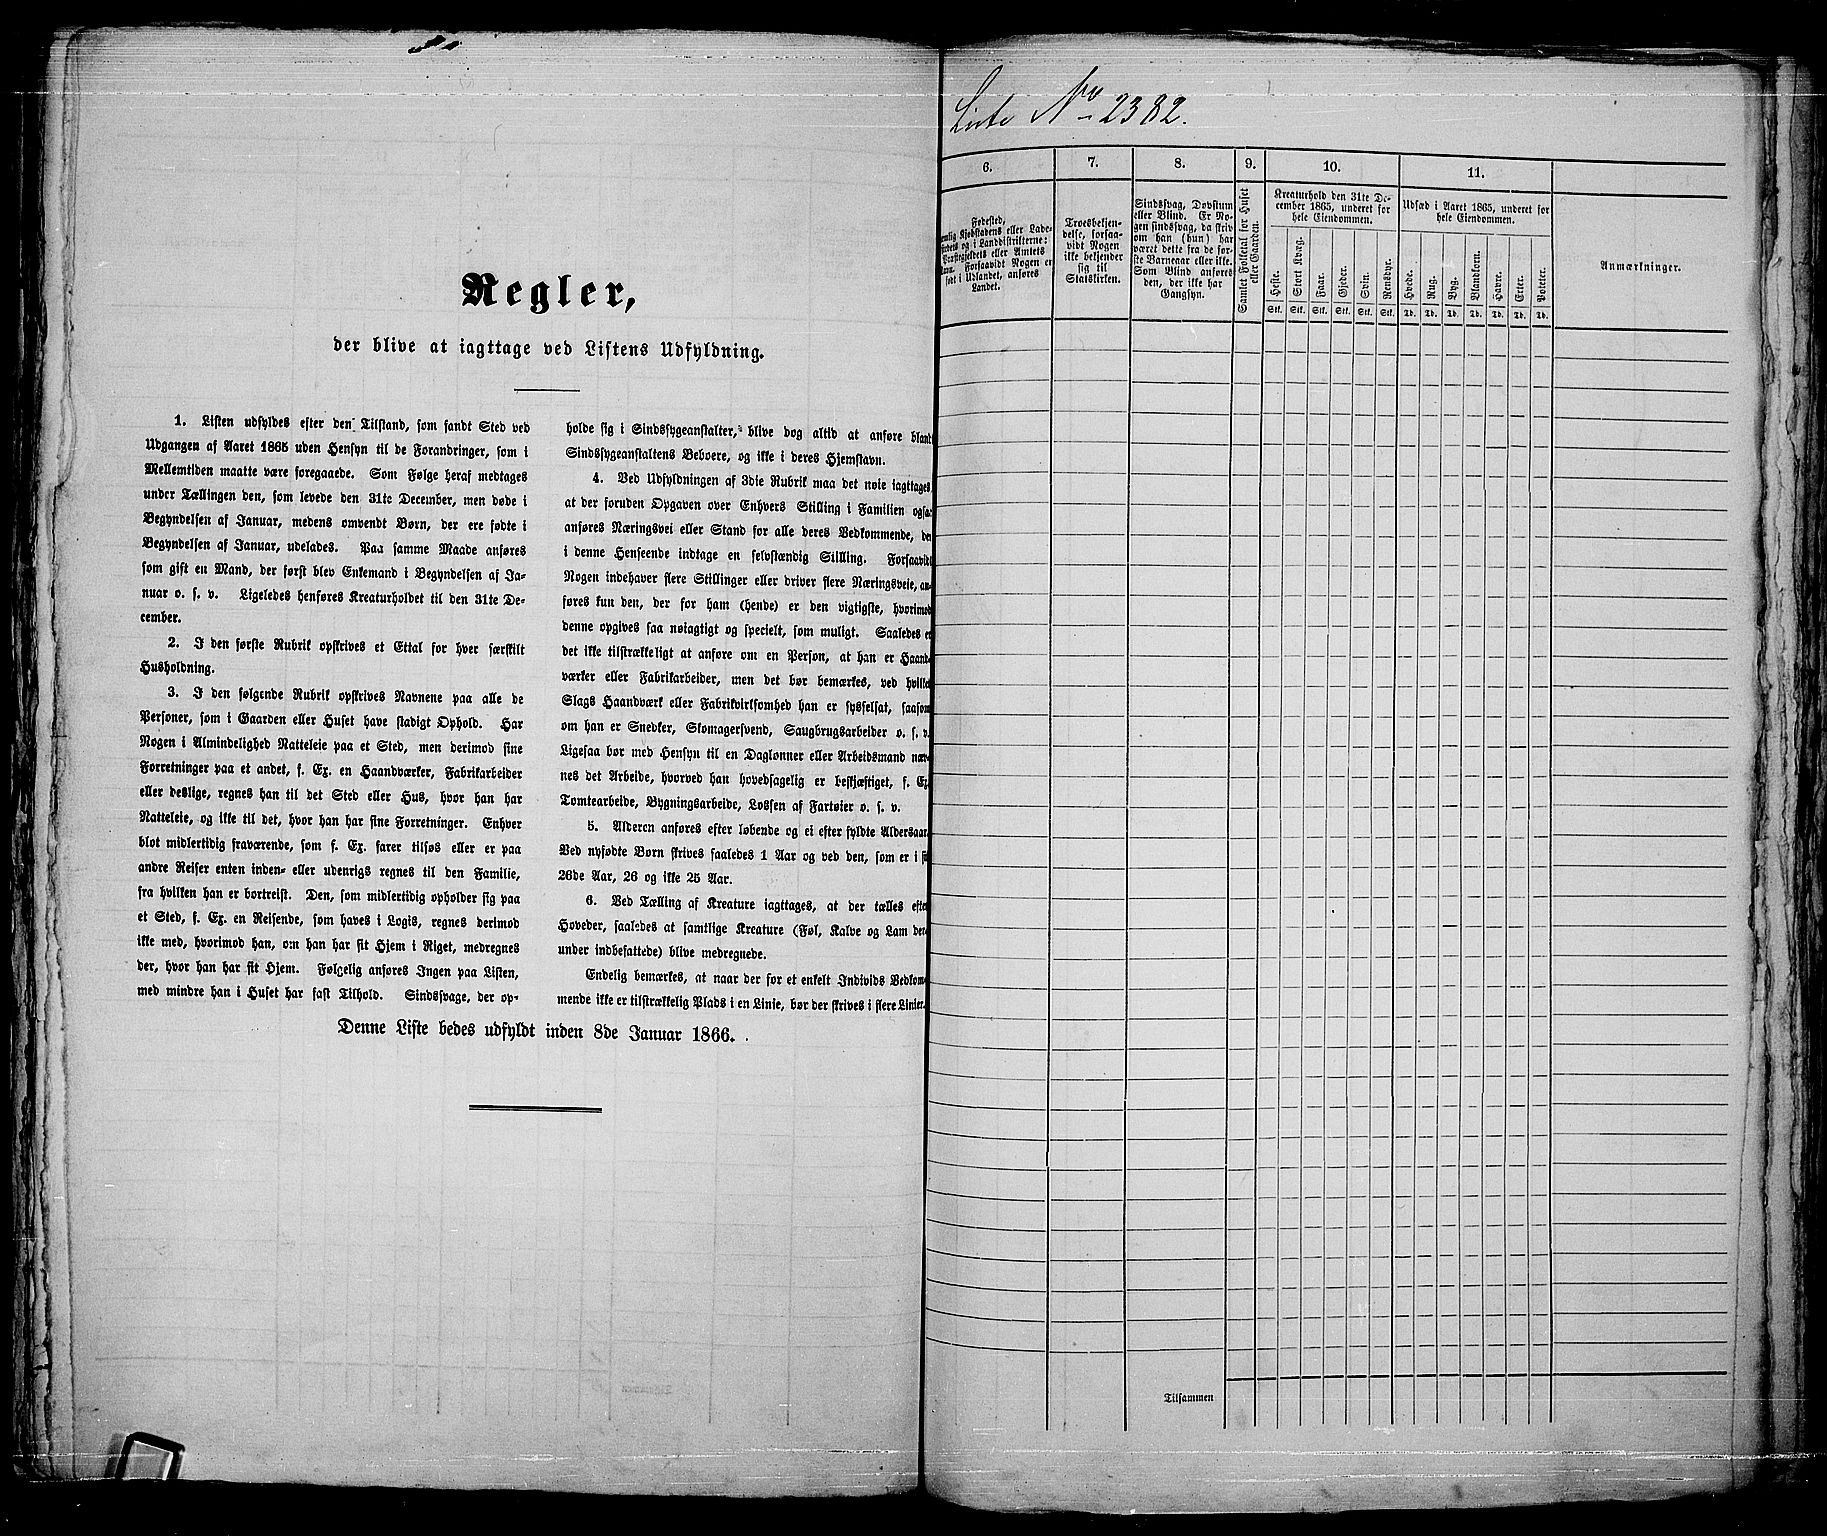 Regler,
der blive at iagttage ved Listens Udfyldning.
1. Listen udfyldes efter den Tilstand, som fandt Sted ved
Udgangen af Aaret 1865 uden Hensyn til de Forandringer, som i
Mellemtiden maatte være foregaaede. Som Følge heraf medtages
under Tællingen den, som levede den 31te December, men døde i
Begyndelsen af Januar, medens omvendt Børn, der ere fødte i
Begyndelsen af Januar, udelades. Paa samme Maade anføres
som gift en Mand, der først blev Enkemand i Begyndelsen af Ja-
nuar o. s. v. Ligeledes henføres Kreaturholdet til den 31te De-
cember.
2. I den første Rubrik opskrives et Ettal for hver særskilt
Husholdning.
3. I den følgende Rubrik opskrives Navnene paa alle de
Personer, som i Gaarden eller Huset have stadigt Ophold. Har
Nogen i Almindelighed Natteleie paa et Sted, men derimod sine
Forretninger paa et andet, f. Ex. en Haandværker, Fabrikarbeider
eller deslige, regnes han til det Sted eller Hus, hvor han har
Natteleie, og ikke til det, hvor han har sine Forretninger. Enhver
blot midlertidig fraværende, som f. Ex. farer tilsøs eller er paa
andre Reiser enten inden- eller udenrigs regnes til den Familie,
fra hvilken han er bortreist. Den, som midlertidig opholder sig paa
et Sted, f. Ex. en Reisende, som haves i Logis, regnes derimod
ikke med, hvorimod han, om han har sit Hjem i Riget, medregnes
der, hvor han har sit Hjem. Følgelig anføres Ingen paa Listen,
med mindre han i Huset har fast Tilhold. Sindssvage, der op-
holde sig i Sindssygeanstalter, blive dog altid at anføre blandt
Sindssygeanstaltens Beboere, og ikke i deres Hjemstavn.
4. Ved Udfyldningen af 3die Rubrik maa det nøie iagttages,
at der foruden Opgaven over Enhvers Stilling i Familien ogsa
anføres Næringsvei eller Stand for alle deres Vedkommende, der
i denne Henseende indtage en selvstændig Stilling. Forsaavidt
Nogen indehaver flere Stillinger eller driver flere Næringsveie, an-
føres kun den, der for ham (hende) er den vigtigste, hvorimod
denne opgives saa nøiagtigt og specielt, som muligt. Saaledes er
det ikke tilstrækkeligt at anføre om en Person, at han er Haand-
værker eller Fabrikarbeider, men det bør bemærkes, ved hvilket
Slags Haandværk eller Fabrikvirksomhed han er sysselsat, saasom
om han er Snedker, Skomagersvend, Saugbrugsarbeider o. s. v.
Ligesaa bør med Hensyn til en Daglønner eller Arbeidsmand næv-
nes det Arbeide, hvorved han hovedsagelig er beskjæftiget, f. Ex.
Tomtearbeide, Bygningsarbeide, Lossen af Fartøier o. s. v.
5. Alderen anføres efter løbende og ei efter fyldte Aldersaar.
Ved nyfødte Børn skrives saaledes 1 Aar og ved den, som er i si
26de Aar, 26 og ikke 25 Aar.
6. Ved Tælling af Kreature iagttages, at der tælles efter
Hoveder, saaledes at samtlige Kreature (Føl, Kalve og Lam der-
under indbefattede) blive medregnede.
Endelig bemærkes, at naar der for et enkelt Individs Vedkom-
mende ikke er tilstrækkelig Plads i en Linie, bør der skrives i flere Linier.
Denne Liste bedes udfyldt inden 8de Januar 1866.
Liste No 2382.
6. 7. 8. 9. 10. 11.
Fødested,
nemlig Kjøbstadens eller Lade-
stedets og i Landdistrikterne:
Præstegjeldets eller Amtets
Navn. Forsaavidt Nogen er
født i Udlandet, anføres
Landet.
Troesbekjen-
delse, forsaa-
vidt Nogen
ikke bekjender
sig til
Statskirken.
Sindssvag, Døvstum
eller Blind. Er No-
gen sindssvag, da skriv
om han (hun) har
været dette fra de før-
ste Barneaar eller ikke.
Som Blind anføres
den, der ikke har
Gangsyn.
Samlet Folketal for Huset
eller Gaarden.
Kreaturhold den 31te De-
cember 1865, underet for
hele Eiendommen.
Heste. Stort Kvæg. Faar. Gjeder. Svin. Rensdyr.
Stk. Stk. Stk. Stk. Stk. Stk.
Udsæd i Aaret 1865, underet for
hele Eiendommen.
Hvede. Rug. Byg. Blandkorn. Havre. Erter. Poteter.
Td. Td. Td. Td. Td. Td. Td.
Anmærkninger.
Tilsammen